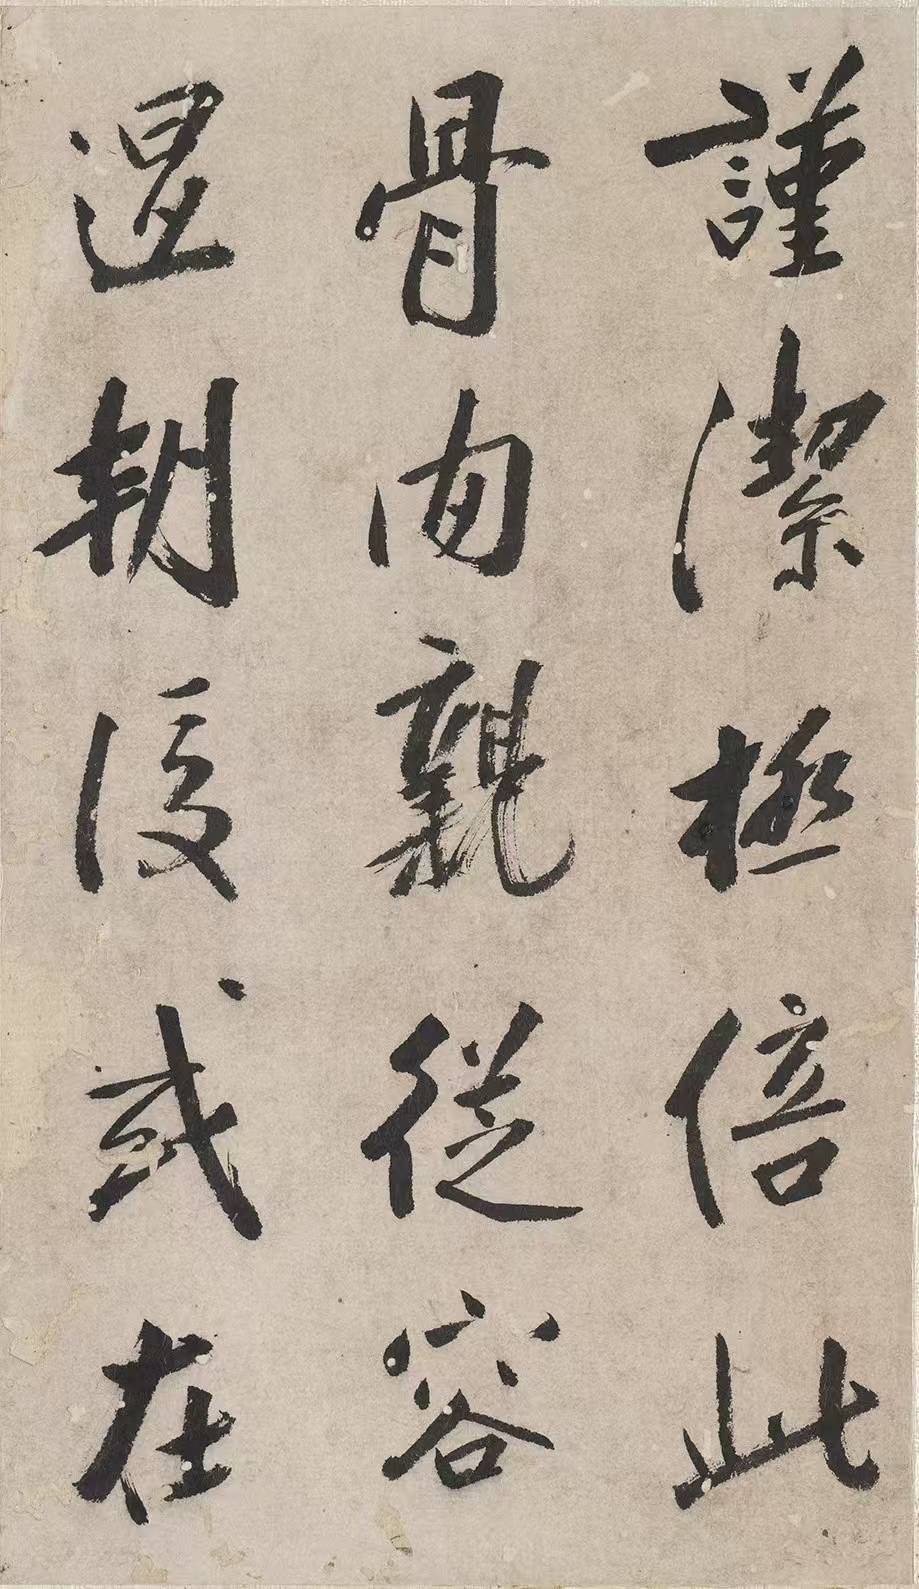 謹潔極倍此
骨肉親從容
退朝後或在